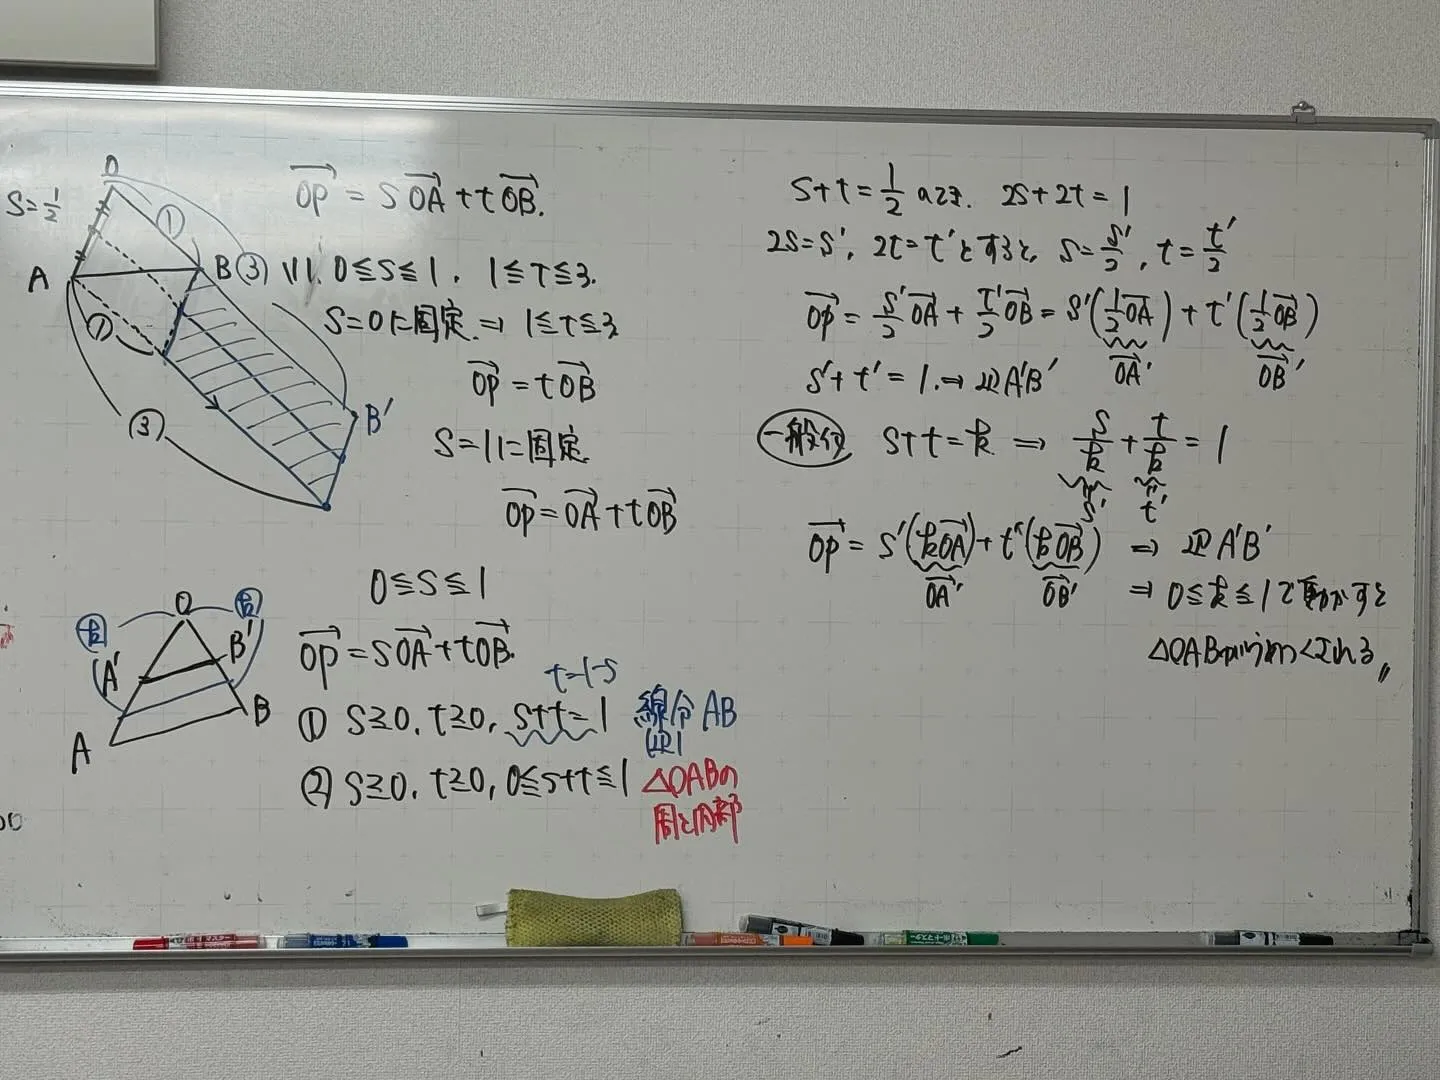 S=1/2
O
A
B
B'
①
③
①
③
OP = sOA + tOB.
0≦s≦1, 1≦t≦3.
s=0に固定 ⇒ 1≦t≦3
OP = tOB
s=1に固定
OP = OA + tOB
0≦s≦1
OP = sOA + tOB.
t=1-s
① s≧0, t≧0, s+t=1 線分AB
② s≧0, t≧0, 0≦s+t≦1 △OABの
周と内部
O
k
k
A'
B'
A
B
s+t=1/2 のとき. 2s+2t=1
2s=s', 2t=t'とすると, s=s'/2, t=t'/2
OP = s'/2 OA + t'/2 OB = s'(1/2 OA) + t'(1/2 OB)
OA' OB'
s'+t'=1. → 線分A'B'
一般化 s+t=k ⇒ s/k + t/k = 1
s' t'
OP = s'(kOA) + t'(kOB) ⇒ 線分A'B'
OA' OB'
⇒ 0≦k≦1で動かすと
△OAB